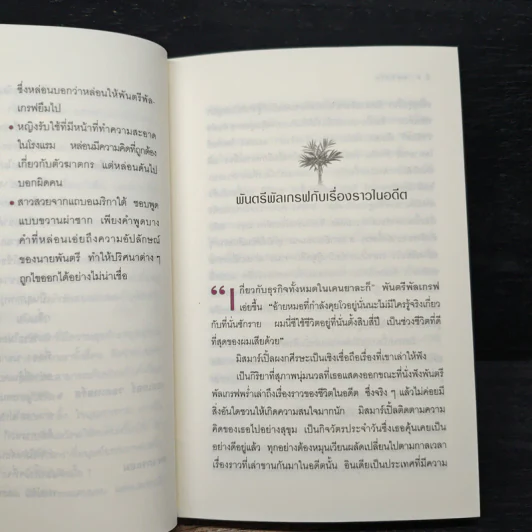 ซึ่งหล่อนบอกว่าหล่อนให้พันตรีพัล-
เกรฟยืมไป
● หญิงรับใช้ที่มีหน้าที่ทำความสะอาด
ในโรงแรม หล่อนมีความคิดที่ถูกต้อง
เกี่ยวกับตัวฆาตกร แต่หล่อนดันไป
บอกผิดคน
● สาวสวยจากแถบอเมริกาใต้ ชอบพูด
แบบขวานผ่าซาก เพียงคำพูดบาง
คำที่หล่อนเอ่ยถึงความอัปลักษณ์
ของนายพันตรี ทำให้ปริศนาต่าง ๆ
ถูกไขออกได้อย่างไม่น่าเชื่อ
พันตรีพัลเกรฟกับเรื่องราวในอดีต
“เกี่ยวกับธุรกิจทั้งหมดในเคนยาละก็” พันตรีพัลเกรฟ
เอ่ยขึ้น “อ้ายหมอที่กำลังคุยโวอยู่นั่นนะไม่มีใครรู้จริงเกี่ยว
กับที่นั่นซักราย ผมนี่ซีใช้ชีวิตอยู่ที่นั่นตั้งสิบสี่ปี เป็นช่วงชีวิตที่ดี
ที่สุดของผมเสียด้วย”
มิสมาร์เปิ้ลผงกศีรษะเป็นเชิงเชื่อถือเรื่องที่เขาเล่าให้ฟัง
เป็นกิริยาที่สุภาพนุ่มนวลที่เธอแสดงออกขณะที่นั่งฟังพันตรี
พัลเกรฟพร่ำเล่าถึงเรื่องราวของชีวิตในอดีต ซึ่งจริง ๆ แล้วไม่ค่อยมี
สิ่งอันใดชวนให้เกิดความสนใจมากนัก มิสมาร์เปิ้ลติดตามความ
คิดของเธอไปอย่างสุขุม เป็นกิจวัตรประจำวันซึ่งเธอคุ้นเคยเป็น
อย่างดีอยู่แล้ว ทุกอย่างต้องหมุนเวียนผลัดเปลี่ยนไปตามกาลเวลา
เรื่องราวที่เล่าขานกันมาในอดีตนั้น อินเดียเป็นประเทศที่มีความ